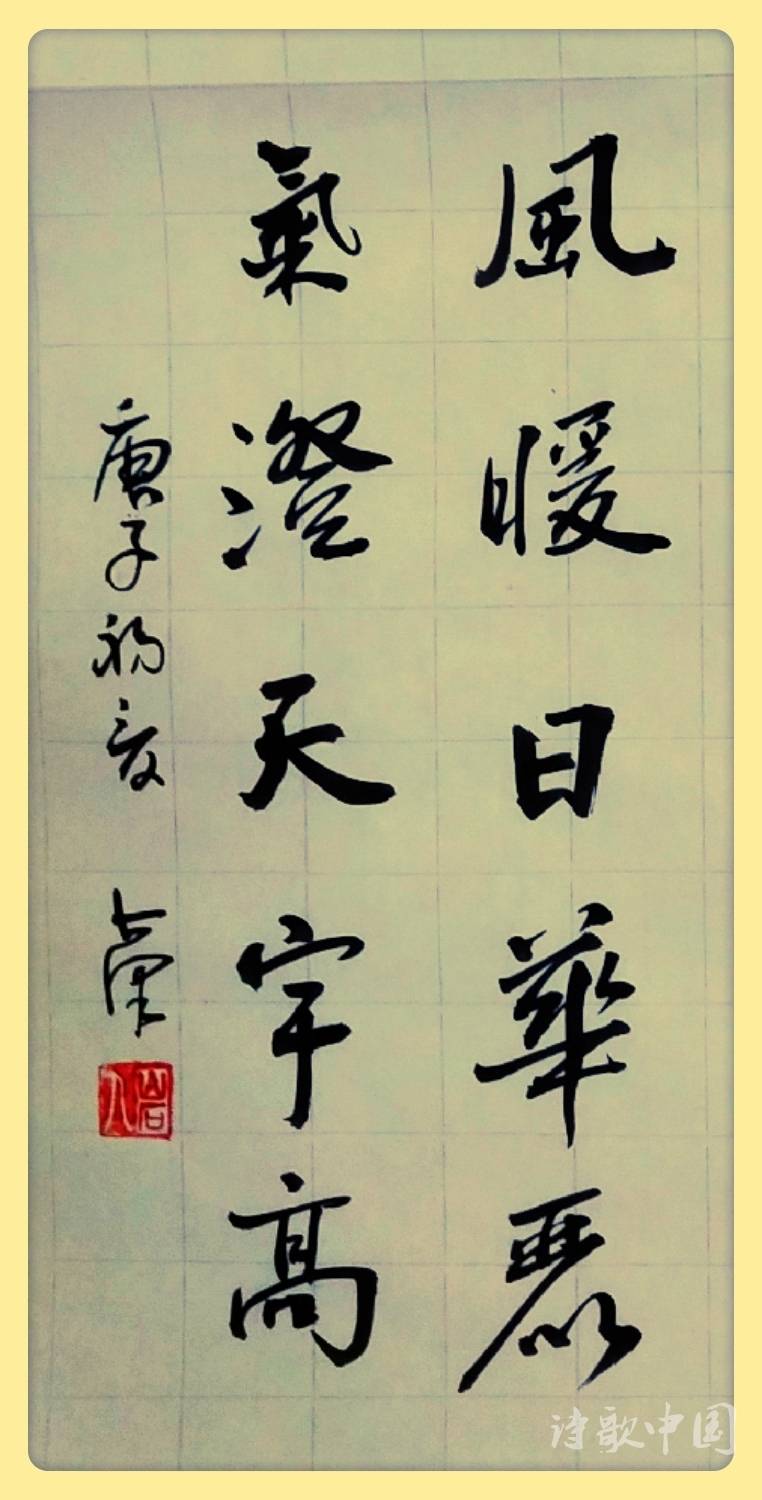 風暖日華麗
氣澄天宇高
庚子初夏
岩人
诗歌中国